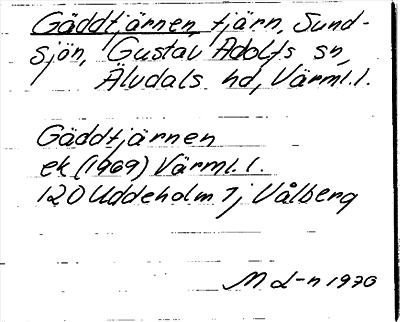 Gäddtjärnen, tjärn, Sund-
sjön, Gustav Adolfs sn,
Älvdals hd, Värml. l.
Gäddtjärnen
ek (1969) Värml. l.
120 Uddeholm 7j Vålberg
M d-n 1970